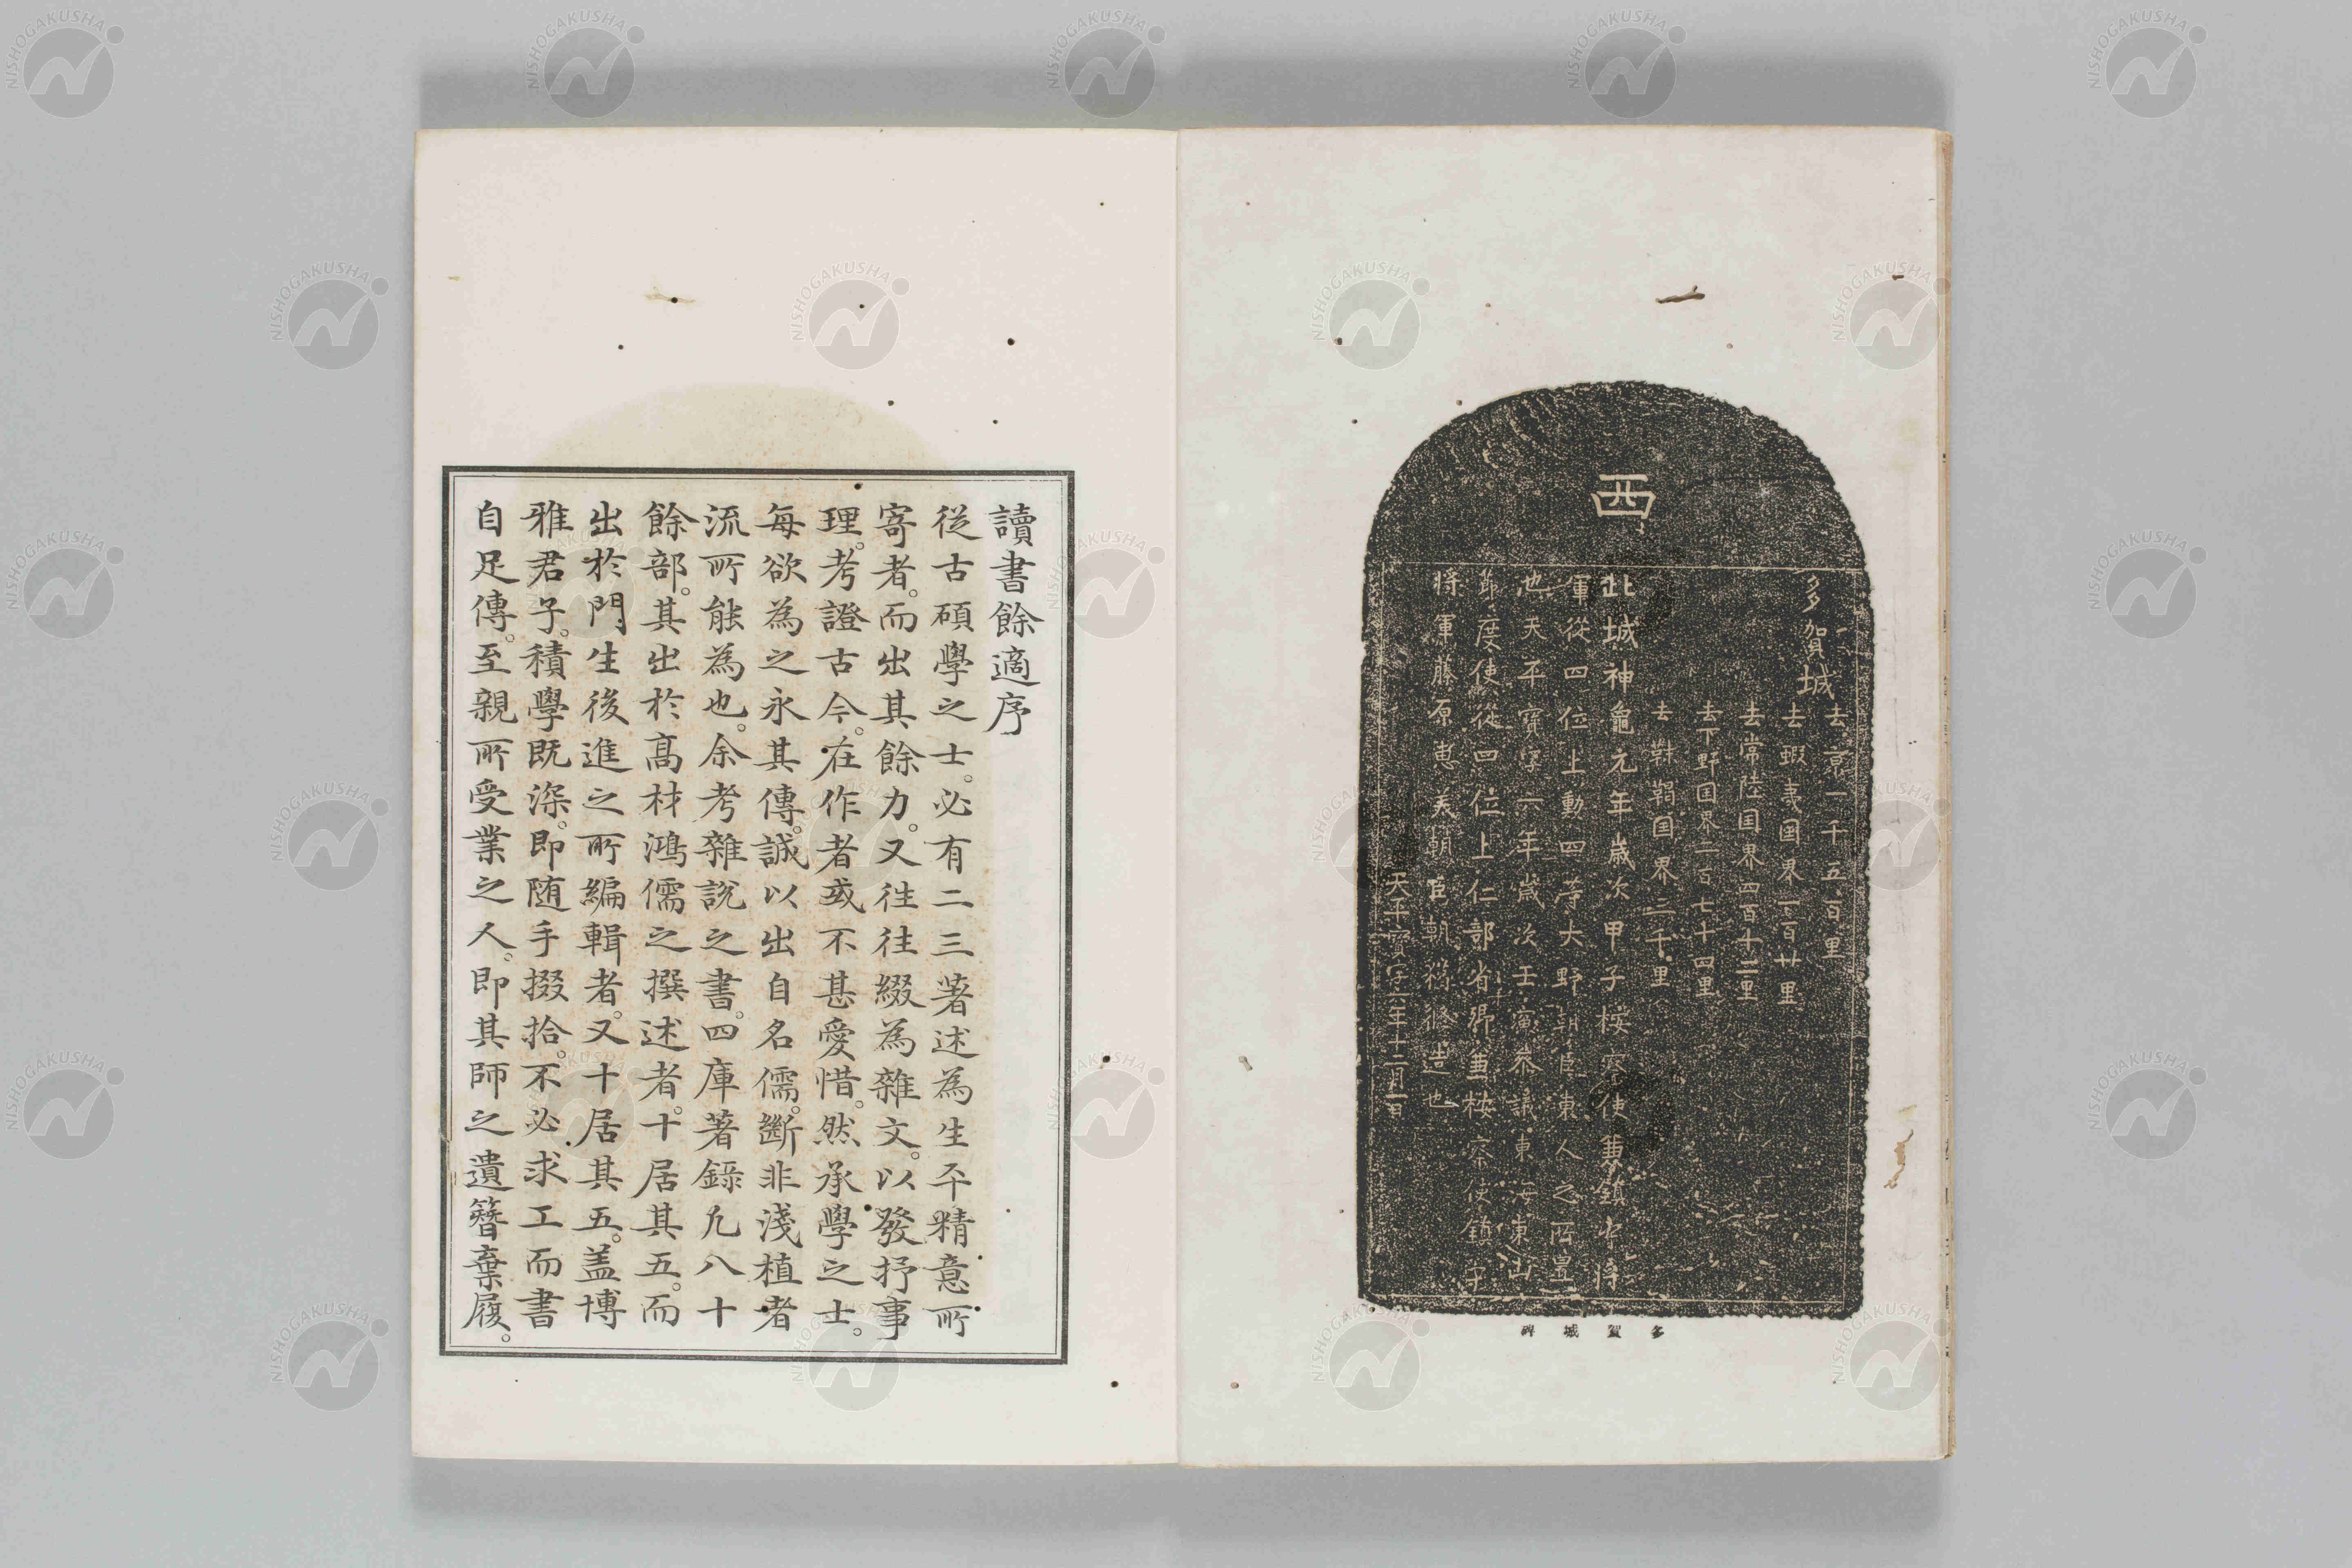 西
多賀城
去京一千五百里
去蝦夷国界一百廿里
去常陸国界四百十二里
去下野国界二百七十四里
去靺鞨国界三千里
此城神龜元年歳次甲子桉察使兼鎮守将
軍從四位上勳四等大野朝臣東人之所置
也天平寶字六年歳次壬寅叅議東海東山
節度使從四位上仁部省卿兼桉察使鎮守
将軍藤原恵美朝臣朝獦修造也
天平寶字六年十二月一日
多賀城碑
讀書餘適序
從古碩學之士。必有二三著述為生平精意所
寄者。而出其餘力。又往往綴為雜文。以發抒事
理。考證古今。在作者或不甚愛惜。然承學之士。
每欲為之永其傳。誠以出自名儒。斷非淺植者
流所能為也。余考雜說之書。四庫著錄凡八十
餘部。其出於高材鴻儒之撰述者。十居其五。而
出於門生後進之所編輯者。又十居其五。盖博
雅君子。積學既深。即随手掇拾。不必求工而書
自足傳。至親所受業之人。即其師之遺簪棄履。
NISHOGAKUSHA